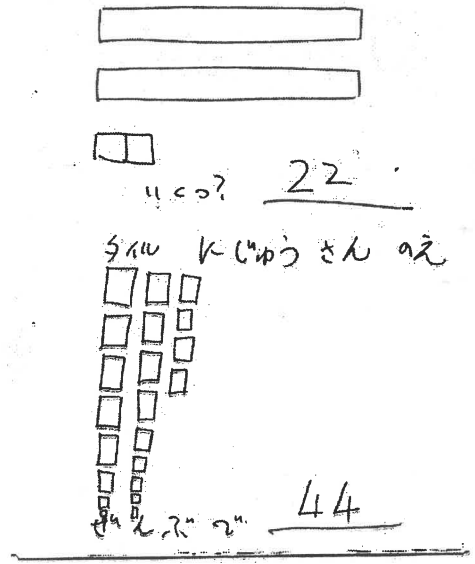 いくつ? 22
タイル にじゅうさん のえ
ぜんぶで 44